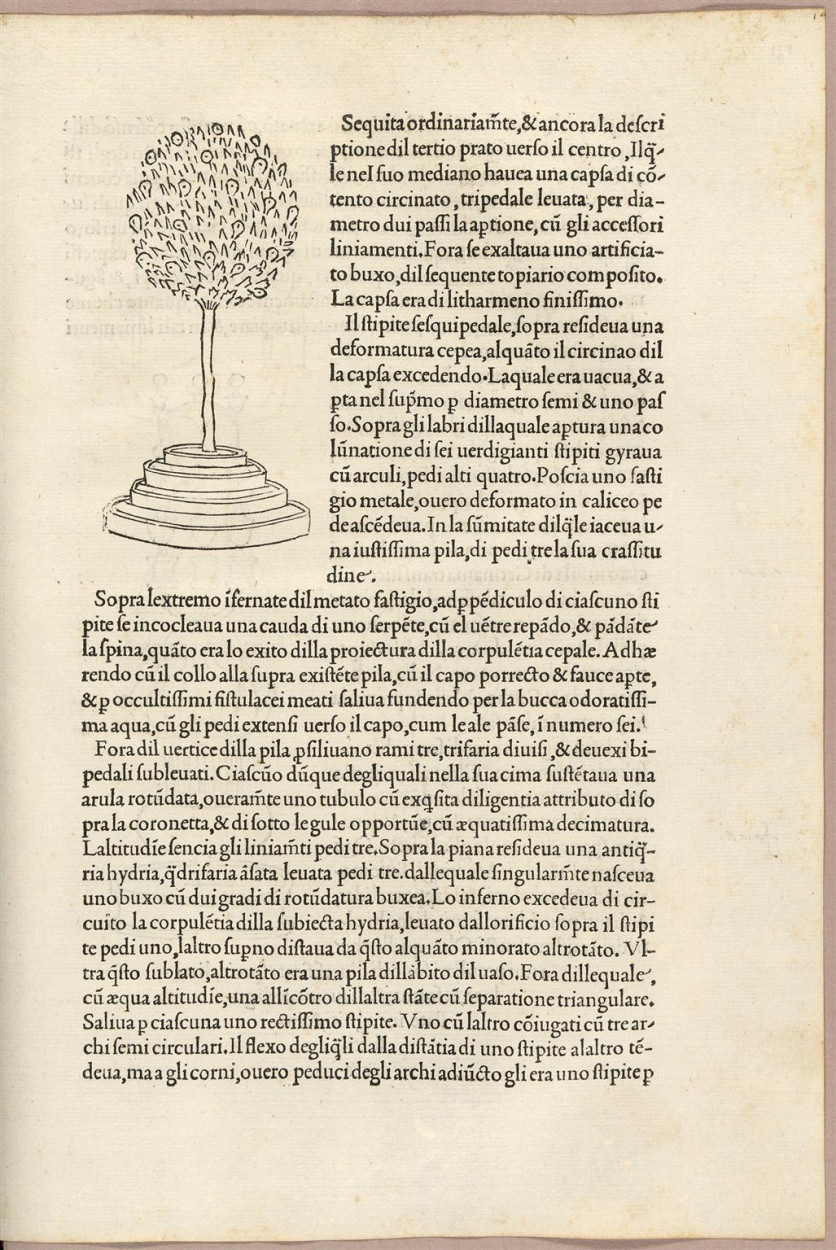 Sequita ordinariam̃te,& ancora la descri
ptione dil tertio prato uerso il centro, Il q̃-
le nel suo mediano hauea una capsa di cõ-
tento circinato, tripedale leuata, per dia-
metro dui passi la aꝑtione, cũ gli accessori
liniamenti. Fora se exaltaua uno artificia-
to buxo, dil sequente topiario composito.
La capsa era di litharmeno finissimo.
Il stipite sesquipedale, sopra resideua una
deformatura cepea, alquãto il circinao dil
la capsa excedendo. Laquale era uacua, & a
ꝑta nel sup̃mo ꝑ diametro semi & uno pas
so. Sopra gli labri dillaquale aꝑtura una co
lũnatione di sei uerdigianti stipiti gyraua
cũ arculi, pedi alti quatro. Poscia uno fasti
gio metale, ouero deformato in caliceo pe
de ascẽdeua. In la sũmitate dilq̃le iaceua u-
na iustissima pila, di pedi tre la sua crassitu
dine.
Sopra lextremo ĩfernate dil metato fastigio, adꝑpẽdiculo di ciascuno sti
pite se incocleaua una cauda di uno serpẽte, cũ el uẽtre repãdo, & pãdãte
la spina, quãto era lo exito dilla proiectura dilla corpulẽtia cepale. Adhæ
rendo cũ il collo alla supra existẽte pila, cũ il capo porrecto & fauce aꝑte,
& ꝑ occultissimi fistulacei meati saliua fundendo per la bucca odoratissi-
ma aqua, cũ gli pedi extensi uerso il capo, cum le ale pãse, ĩ numero sei.
Fora dil uertice dilla pila ꝓsiliuano rami tre, trifaria diuisi, & deuexi bi-
pedali subleuati. Ciascũo dũque degliquali nella sua cima sustẽtaua una
arula rotũdata, oueram̃te uno tubulo cũ exq̃sita diligentia attributo di so
pra la coronetta, & di sotto le gule opportũe, cũ æquatissima decimatura.
Laltitudĩe sencia gli liniam̃ti pedi tre. Sopra la piana resideua una antiq̃-
ria hydria, q̃drifaria ãsata leuata pedi tre. dallequale singularm̃te nasceua
uno buxo cũ dui gradi di rotũdatura buxea. Lo inferno excedeua di cir-
cuito la corpulẽtia dilla subiecta hydria, leuato dallorificio sopra il stipi
te pedi uno, laltro sup̃no distaua da q̃sto alquãto minorato altrotãto. Vl-
tra q̃sto sublato, altrotãto era una pila dillãbito dil uaso. Fora dillequale,
cũ æqua altitudĩe, una allĩcõtro dillaltra stãte cũ separatione triangulare.
Saliua ꝑ ciascuna uno rectissimo stipite. Vno cũ laltro cõiugati cũ tre ar-
chi semi circulari. Il flexo degliq̃li dalla distãtia di uno stipite alaltro tẽ-
deua, ma a gli corni, ouero peduci degli archi adiũcto gli era uno stipite ꝑ